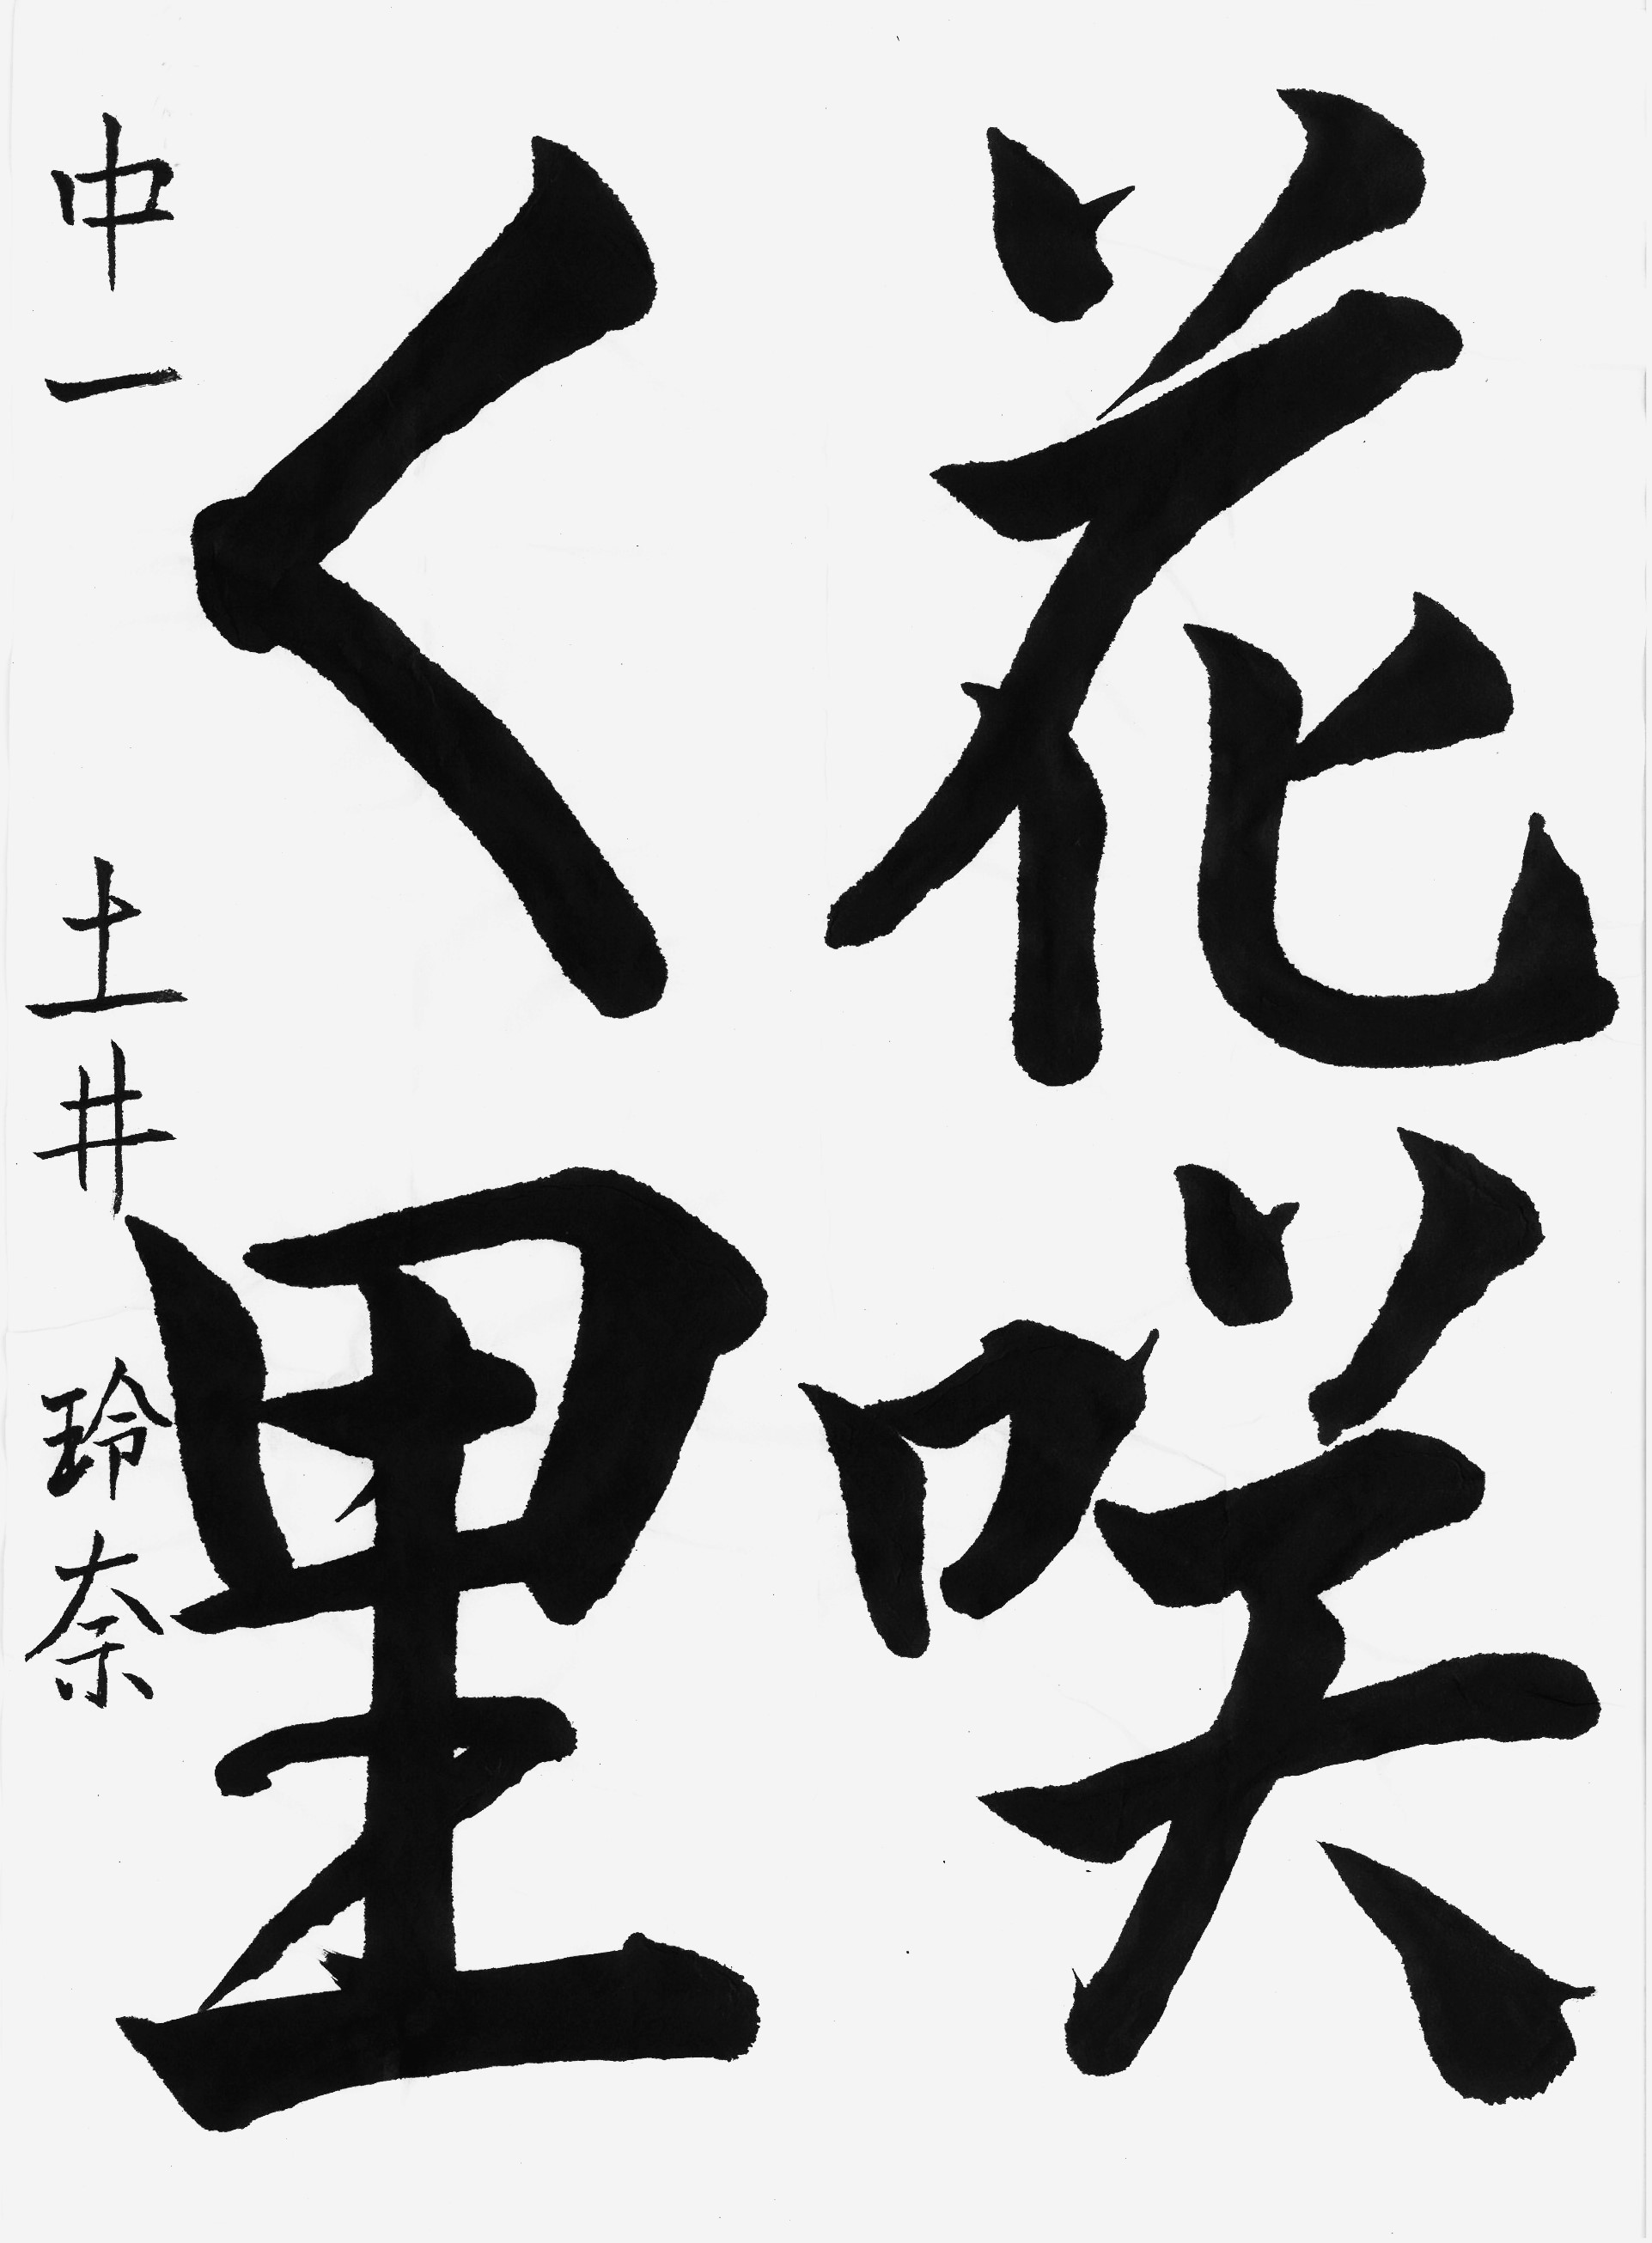 花咲
く里
中一 土井 玲奈